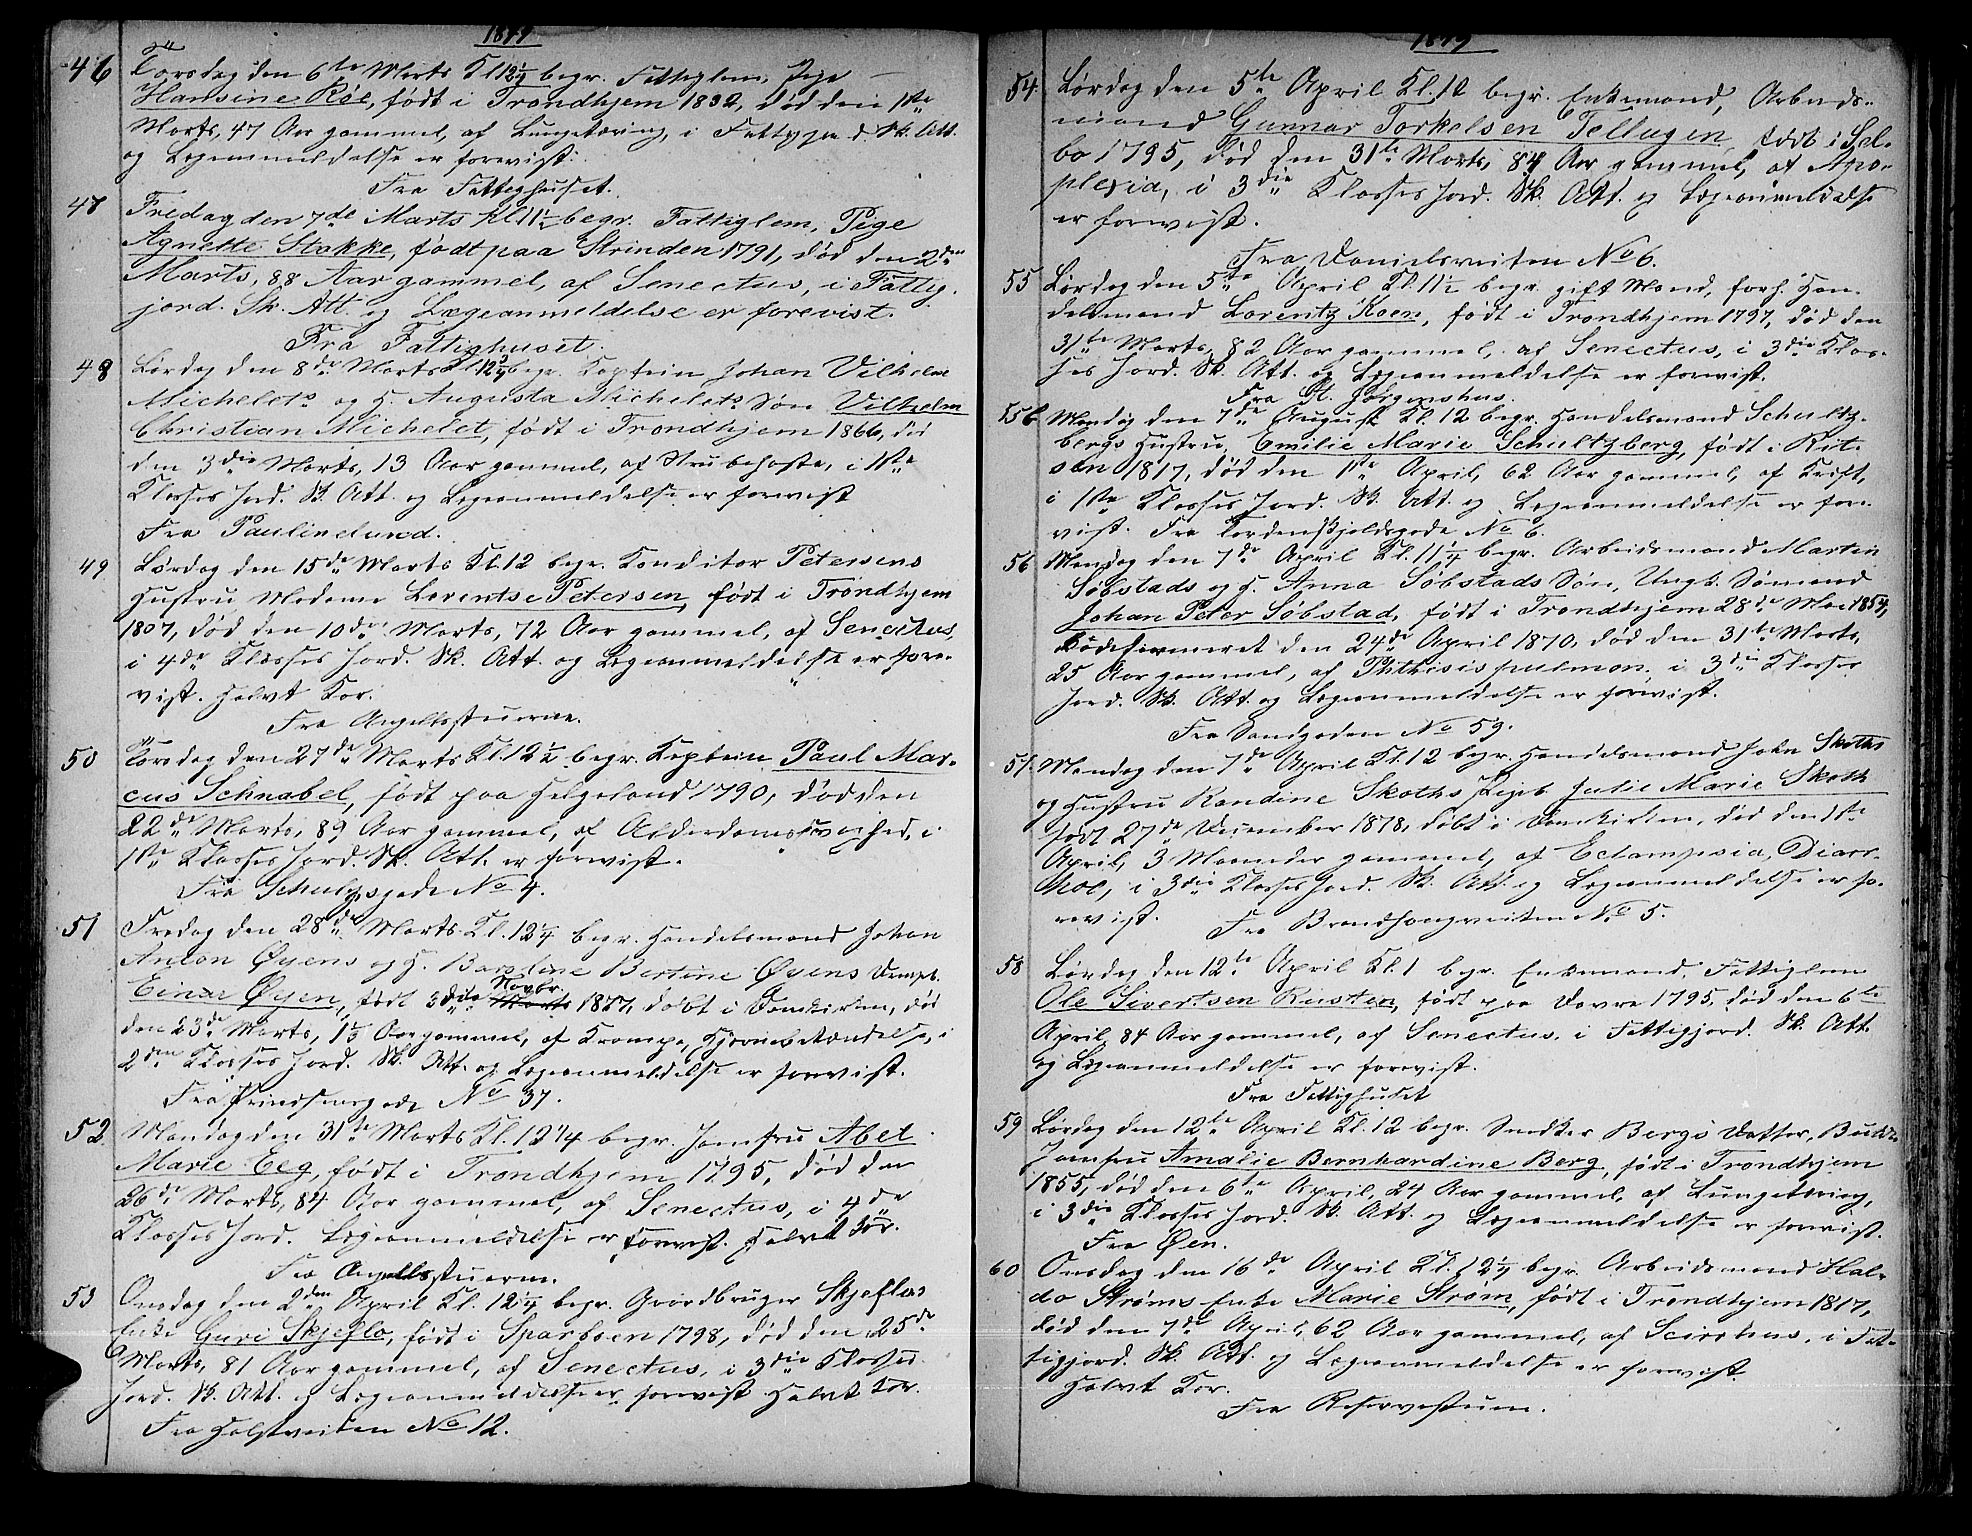 1879
46 Torsdag den 6te Marts Kl 12¼ begr. Fattiglem, Pige
Hansine Röe, født i Trondhjem 1832, død den 1ste
Marts, 47 Aar gammel, af Lungetæring, i Fattigjord. Sk. Att.
og Lægeanmeldelse er forevist.
Fra Fattighuset.
47 Fredag den 7de Marts Kl 11½ begr. Fattiglem, Pige
Agnette Stokke, født paa Strinden 1791, død den 2den
Marts, 88 Aar gammel, af Senectus, i Fattig-
jord. Sk. Att. og Lægeanmeldelse er forevist.
Fra Fattighuset.
48 Lørdag den 8de Marts Kl 12¾ begr. Kaptein Johan Vilhelm
Michelets og H. Augusta Michelets Søn Vilhelm
Christian Michelet, født i Trondhjem 1866, død
den 3die Marts, 13 Aar gammel, af Strubehoste, i 1ste
Klasses Jord. Sk. Att. og Lægeanmeldelse er forevist
Fra Paulinelund.
49 Lørdag den 15de Marts Kl. 12 begr. Konditor Petersens
Hustru Madame Lorentse Petersen, født i Trondhjem
1807, død den 10de Marts, 72 Aar gammel, af Senectus,
i 4de Klasses Jord. Sk. Att. og Lægeanmeldelse er fore-
vist. Halvt Kor.
Fra Angellsstuerne.
50 Torsdag den 27de Marts Kl. 12½ begr. Kaptein Paul Mar-
cus Schnabel, født paa Helgeland 1790, død den
22de Marts, 89 Aar gammel, af Alderdomssvaghed, i
1ste Klasses Jord. Sk. Att. er forevist.
Fra Schultzgade No 4.
51 Fredag den 28de Marts Kl. 12¼ begr. Handelsmand Johan
Anton Øyens og H. Berntine Øyens Drengeb.
Einar Øyen, født 3die Marts Novbr. 1877, døbt i Domkirken, død
den 23de Marts, 1⅓ Aar gammel, af Krampe, Hjernebetændelse, i
2den Klasses Jord. Sk. Att. og Lægeanmeldelse er forevist.
Fra Prindsensgade No 37.
52 Mandag den 31te Marts Kl. 12¼ begr. Jomfru Abel
Marie Eeg, født i Trondhjem 1795, død den
26de Marts, 84 Aar gammel, af Senectus, i 4de
Klasses Jord. Lægeanmeldelse er forevist. Halvt Kor.
Fra Angellsstuerne.
53 Onsdag den 2den April Kl. 12¼ begr. Gaardbruger Skjeflos
Enke Guri Skjeflo, født i Sparbuen 1798, død den 25de
Marts, 81 Aar gammel, af Senectus, i 3die Klasses
Jord. Sk. Att. og Lægeanmeldelse er forevist Halvt Kor.
Fra Holstveiten No 12.
1879
54 Lørdag den 5te April Kl. 12 begr. Enkemand, Arbeids-
mand Gunnar Torkelsen Tellugen, født i Sel-
bo 1795, død den 31te Marts, 84 Aar gammel, af Apo-
plexia, i 3die Klasses Jord. Sk. Att. og Lægeanmeldelse
er forevist.
Fra Danielsveiten No 6.
55 Lørdag den 5te April Kl. 11½ begr. gift Mand, forh. Han-
delsmand Lorentz Koen, født i Trondhjem 1797, død den
31te Marts, 82 Aar gammel, af Senectus, i 3die Klas-
ses Jord. Sk. Att. og Lægeanmeldelse er forevist.
Fra St. Jørgenshus.
55b Mandag den 7de August Kl. 12 begr. Handelsmand Schultz-
bergs Hustru, Emilie Marie Schultzberg, født i Rit-
sen 1817, død den 1ste April, 62 Aar gammel, af Kræft,
i 1ste Klasses Jord. Sk. Att. og Lægeanmeldelse er fore-
vist. Fra Tordenskjoldsgade No 6.
56 Mandag den 7de April Kl. 11¼ begr. Arbeidsmand Martin
Søbstads og H. Anna Søbstads Søn, Ungk. Sømand
Johan Peter Søbstad, født i Trondhjem 28de Mai 1854,
den 24de April 1870, død den 31te Marts,
25 Aar gammel, af Phthisis pulmon, i 3die Klasses
Jord. Sk. Att. og Lægeanmeldelse er forevist.
Fra Sandgaden No 59.
57. Mandag den 7de April Kl. 12 begr. Handelsmand John Skoths
og Hustru Randine Skoths Pigeb. Julie Marie Skoth
født 27de December 1878, døbt i Domkirken, død den 1ste
April, 3 Maaneder gammel, af Eclampsia, Diarr-
hoe, i 3die Klasses Jord. Sk. Att. og Lægeanmeldelse er fo-
revist. Fra Brandhaugveiten No 5.
58 Lørdag den 12te April Kl. 1 begr. Enkemand, Fattiglem
Ole Sivertsen Rusten, født paa Dovre 1795, død den 6te
April, 84 Aar gammel, af Senectus, i Fattigjord. Sk. Att.
og Lægeanmeldelse er forevist.
Fra Fattighuset
59 Lørdag den 12te April Kl. 12 begr. Snedker Bergs Datter,
Jomfru Amalie Bernhardine Berg, født i Trondhjem
1855, død den 6te April, 24 Aar gammel, af Lungetæring,
i 3die Klasses Jord. Sk. Att. og Lægeanmeldelse er forevist.
Fra Øen.
60 Onsdag den 16de April Kl. 12¼ begr. Arbeidsmand Hal-
do Strøms Enke Marie Strøm, født i Trondhjem 1817,
død den 7de April, 62 Aar gammel, af Scirrhus, i Fat-
tigjord. Sk. Att. og Lægeanmeldelse er forevist.
Halvt Kor.
Fra Reservestuen.